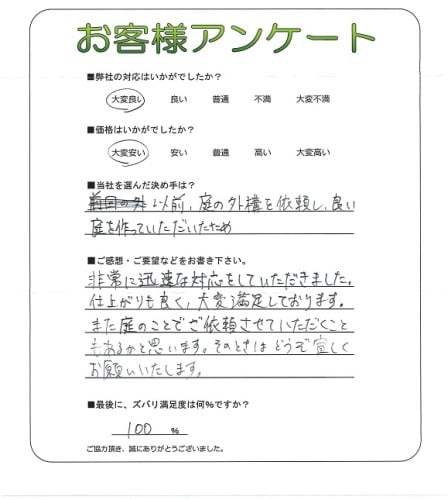 お客様アンケート
■弊社の対応はいかがでしたか？
大変良い 良い 普通 不満 大変不満
■価格はいかがでしたか？
大変安い 安い 普通 高い 大変高い
■当社を選んだ決め手は？
以前、庭の外構を依頼し、良い
庭を作っていただいたため
■ご感想・ご要望などをお書き下さい。
非常に迅速な対応をしていただきました。
仕上がりも良く、大変満足しております。
また庭のことでご依頼させていただくこと
もあるかと思います。そのときはどうぞ宜しく
お願いいたします。
■最後に、ズバリ満足度は何％ですか？
100 ％
ご協力頂き、誠にありがとうございました。